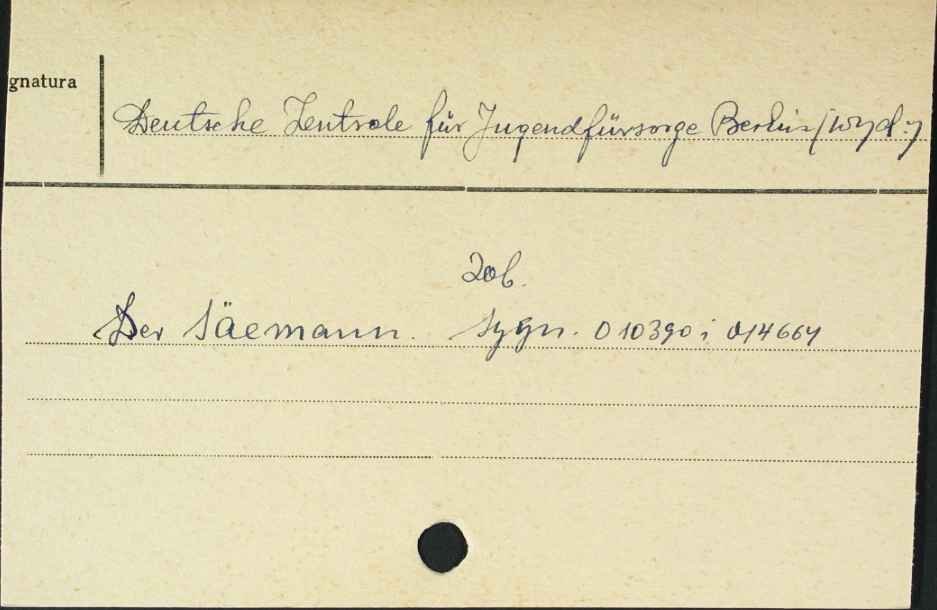 gnatura
Deutsche Zentrale für Jugendfürsorge Berlin /wyd./
Zob.
Der Säemann. Sygn. 010390 i 014664